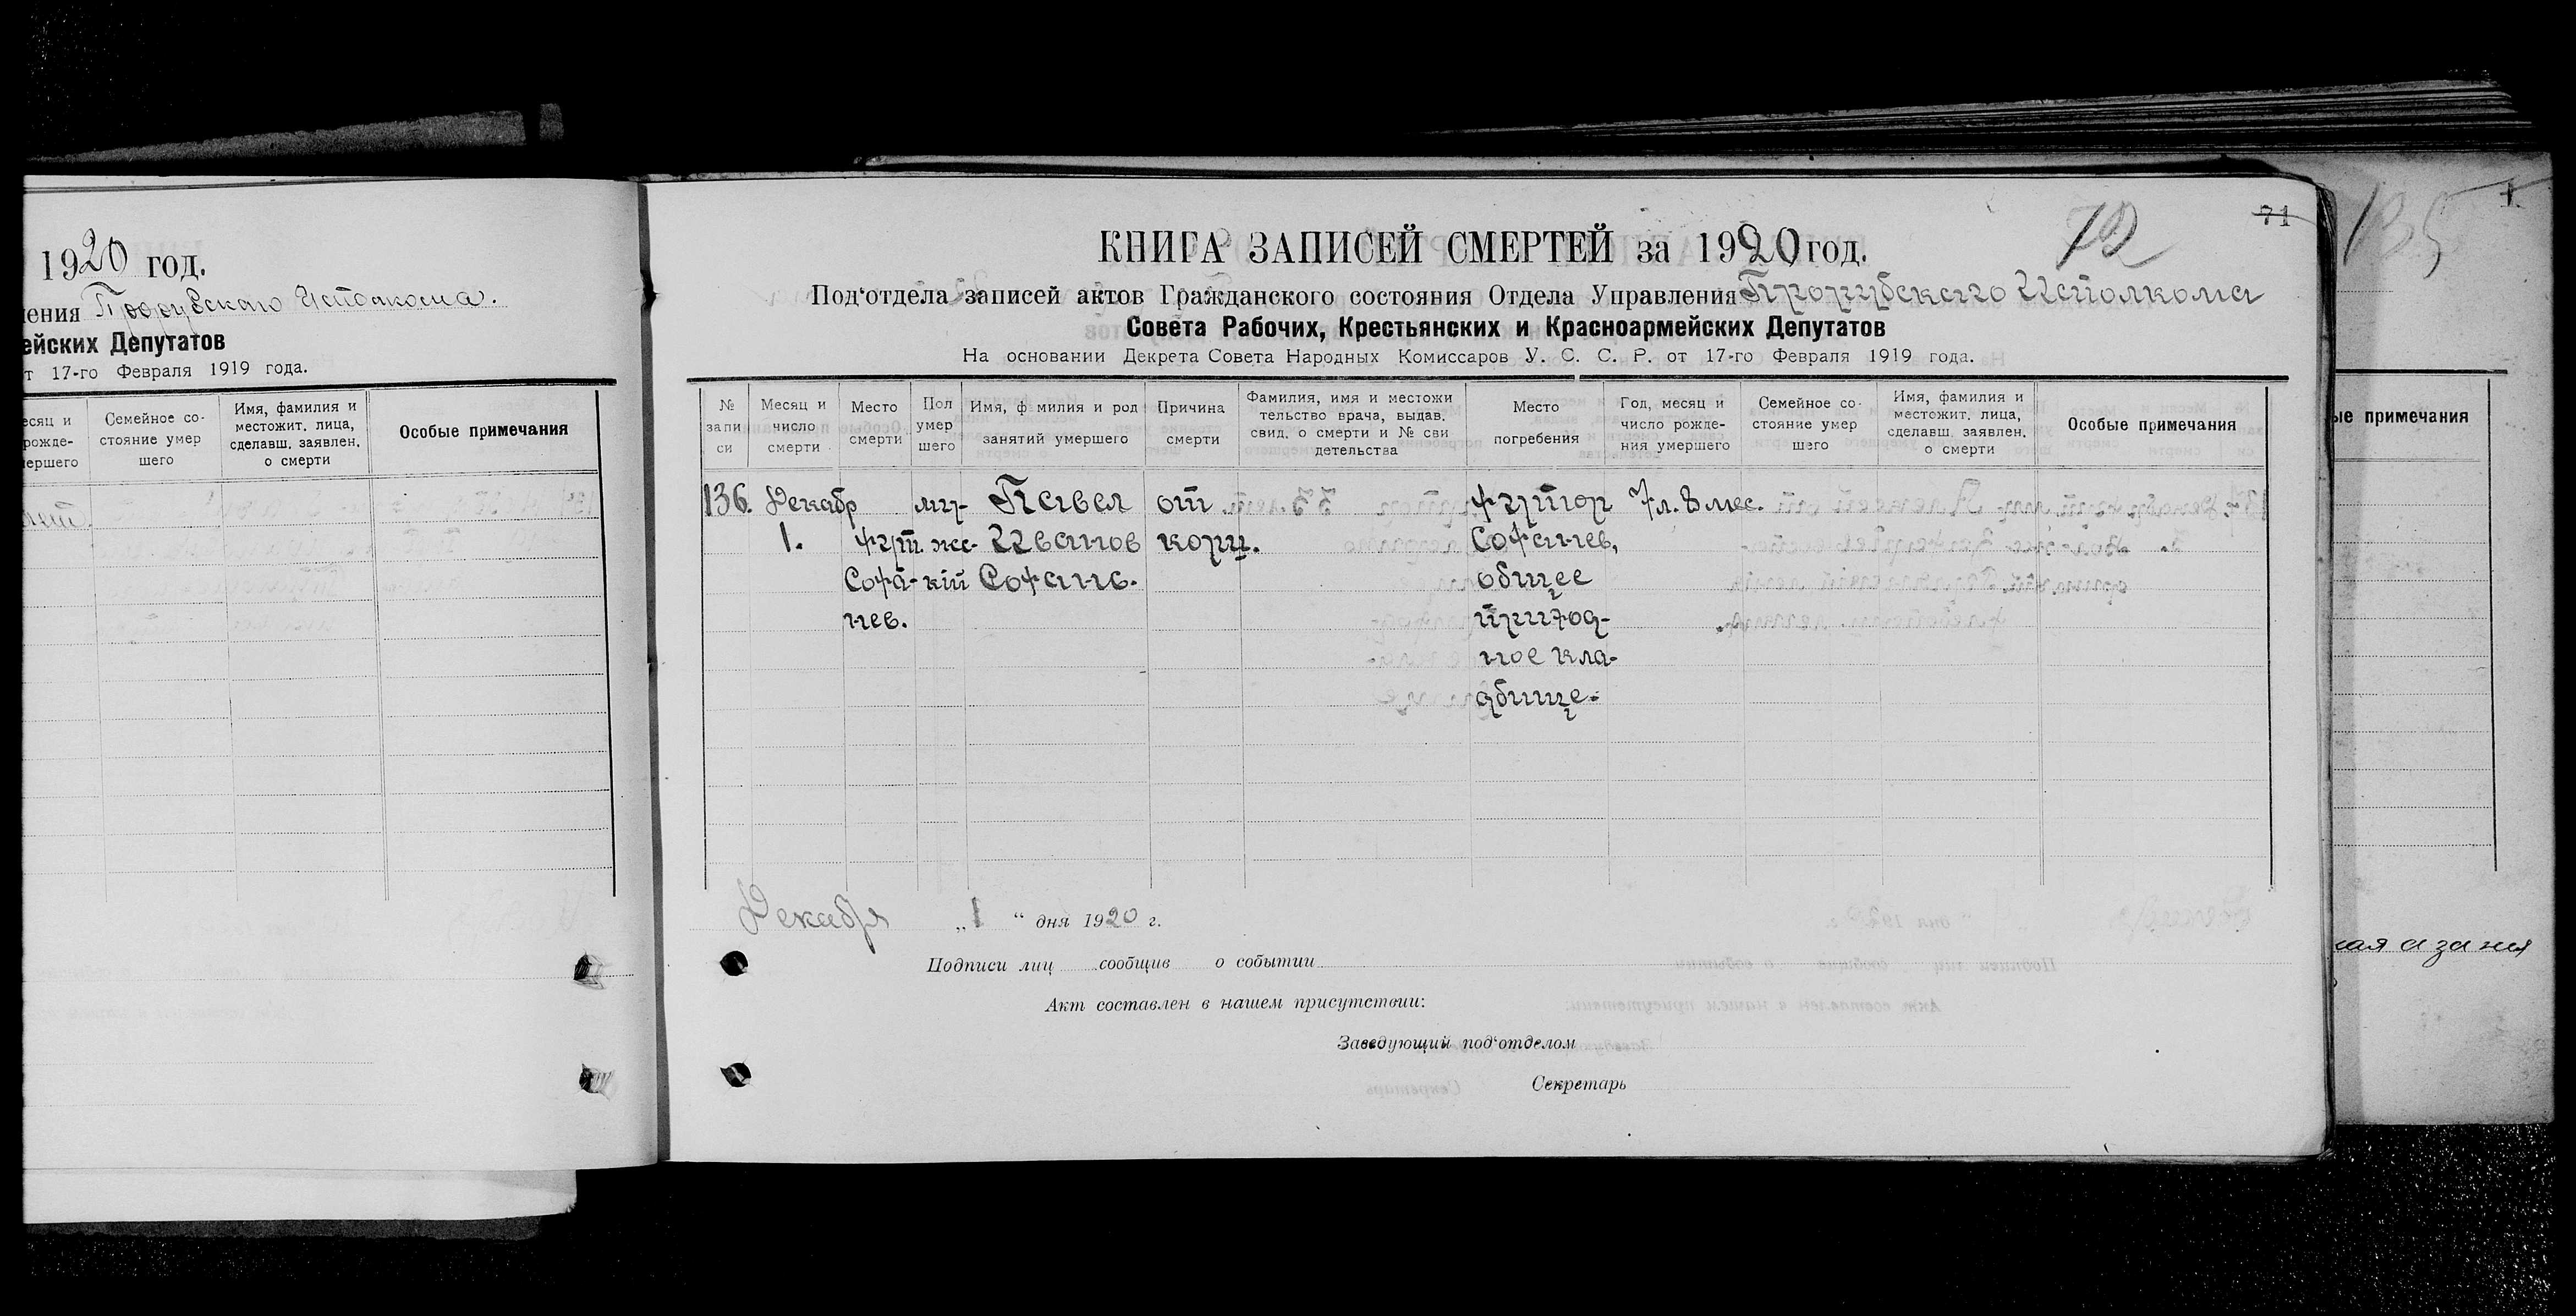 1920 год.
ения
ейских Депутатов
т 17-го Февраля 1919 года.
есяц и
рожде-
мершего
Семейное со-
стояние умер
шего
Имя, фамилия и
местожит. лица,
сделавш. заявлен.
о смерти
Особые примечания
72
71
КНИГА ЗАПИСЕЙ СМЕРТЕЙ за 1920 год.
Под'отдела записей актов Гражданского состояния Отдела Управления Исполкома
Совета Рабочих, Крестьянских и Красноармейских Депутатов
На основании Декрета Совета Народных Комиссаров У. С. С. Р. от 17-го Февраля 1919 года.
№
запи
си
Месяц и
число
смерти
Место
смерти
Пол
умер
шего
Имя, ф милия и род
занятий умершего
Причина
смерти
Фамилия, имя и местожи
тельство врача, выдав.
свид. о смерти и № сви
детельства
Место
погребения
Год, месяц и
число рожде-
ния умершего
Семейное со-
стояние умер
шего
Имя, фамилия и
местожит. лица,
сделавш. заявлен.
о смерти
Особые примечания
136.
Декабр
1.
хут.
Софа-
нев.
му-
жс-
кій
Павел
Иванов
Софань.
от
кори.
хутор
Софанев,
общее
приход-
ное кла-
дбище.
7 л. 8 мес.
Декабря „1“ дня 1920 г.
Подписи лиц сообщив о событии
Акт составлен в нашем присутствии:
Заведующий под'отделом
Секретарь
135
ые примечания